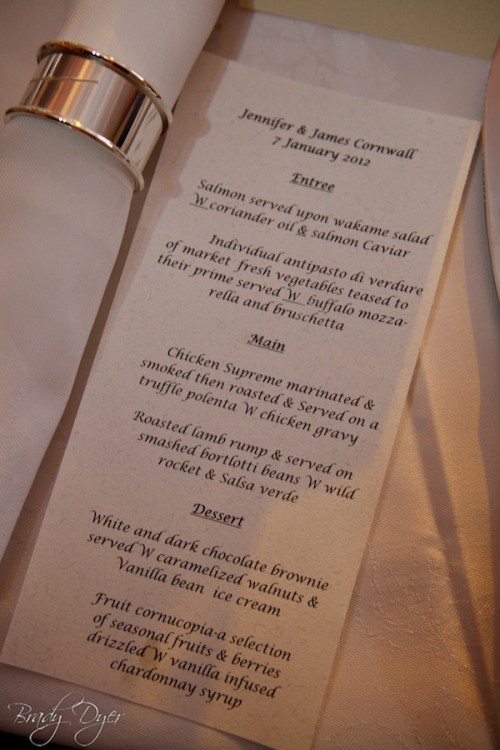 Jennifer & James Cornwall
7 January 2012
Entree
Salmon served upon wakame salad
W coriander oil & salmon Caviar
Individual antipasto di verdure
of market fresh vegetables teased to
their prime served W buffalo mozza-
rella and bruschetta
Main
Chicken Supreme marinated &
smoked then roasted & Served on a
truffle polenta W chicken gravy
Roasted lamb rump & served on
smashed bortlotti beans W wild
rocket & Salsa verde
Dessert
White and dark chocolate brownie
served W caramelized walnuts &
Vanilla bean ice cream
Fruit cornucopia-a selection
of seasonal fruits & berries
drizzled W vanilla infused
chardonnay syrup
Brady Dyer